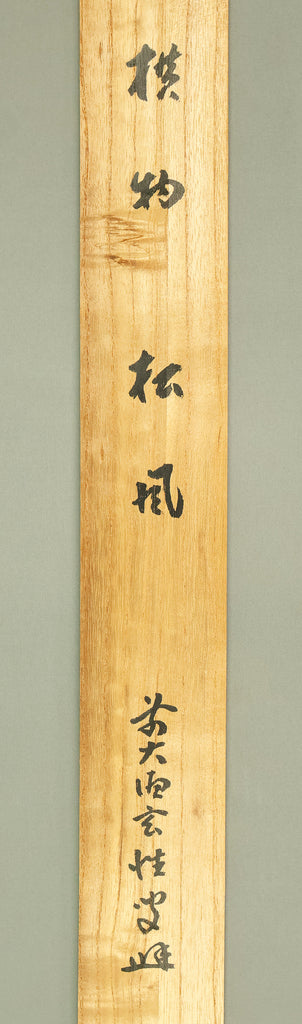 横物 松風
前大徳玄性叟